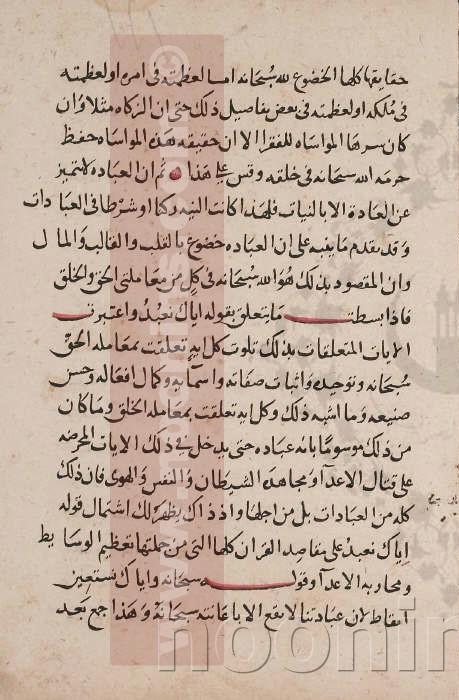 حقايقها كلها الخضوع لله سُبحانه اما لعظمته فى امره او لعظمته
فى مُلكه او لعظمته فى بعض تفاصيل ذلك حتى ان الزكاه مثلا وان
كان سرها المواساه للفقرا الا ان حقيقه هذه المواساه حفظ
حرمه الله سبحانه فى خلقه وقس على هذا ثم ان العباده لا تتميز
عن العادة الا بالنيات فلهذا كانت النيه ركنا او شرطا فى العبادات
وقد تقدم ما ينبه على ان العباده خضوع بالقلب والقالب والمال
وان المقصود بذلك هُوَ الله سُبحانه فى كل من معاملتى الحق والخلق
فاذا بسطت ما يتعلق بقوله اياك نعبُدُ واعتبرت
الايات المتعلقات بذلك تلوت كل ايه تعلقت بمعامله الحقّ
سُبحانه وتوحيده واثبات صفاته واسمآيه وكمال افعاله وحسن
صنيعه وما اشبه ذلك وكل ايه تعلقت بمعامله الخلق وما كان
من ذلك موسومًا بانه عباده حتى يدخل فى ذلك الايات المحرضه
على قتال الاعدآ ومجاهده الشيطان والنفس والهوى فان ذلك
كله من العبادات بل من اجلها واذ ذاك يظهر لك اشتمال قوله
اياك نعبدُ على مقاصد القران كلها التى من جملتها تعظيم الوسايط
ومحاربه الاعدآ وقوله سبحانه واياك نستعين
ايقاظ لان عبادتنا لا يقع الا باعانته سبحانهُ وَهذا جمع بَعد
noorin